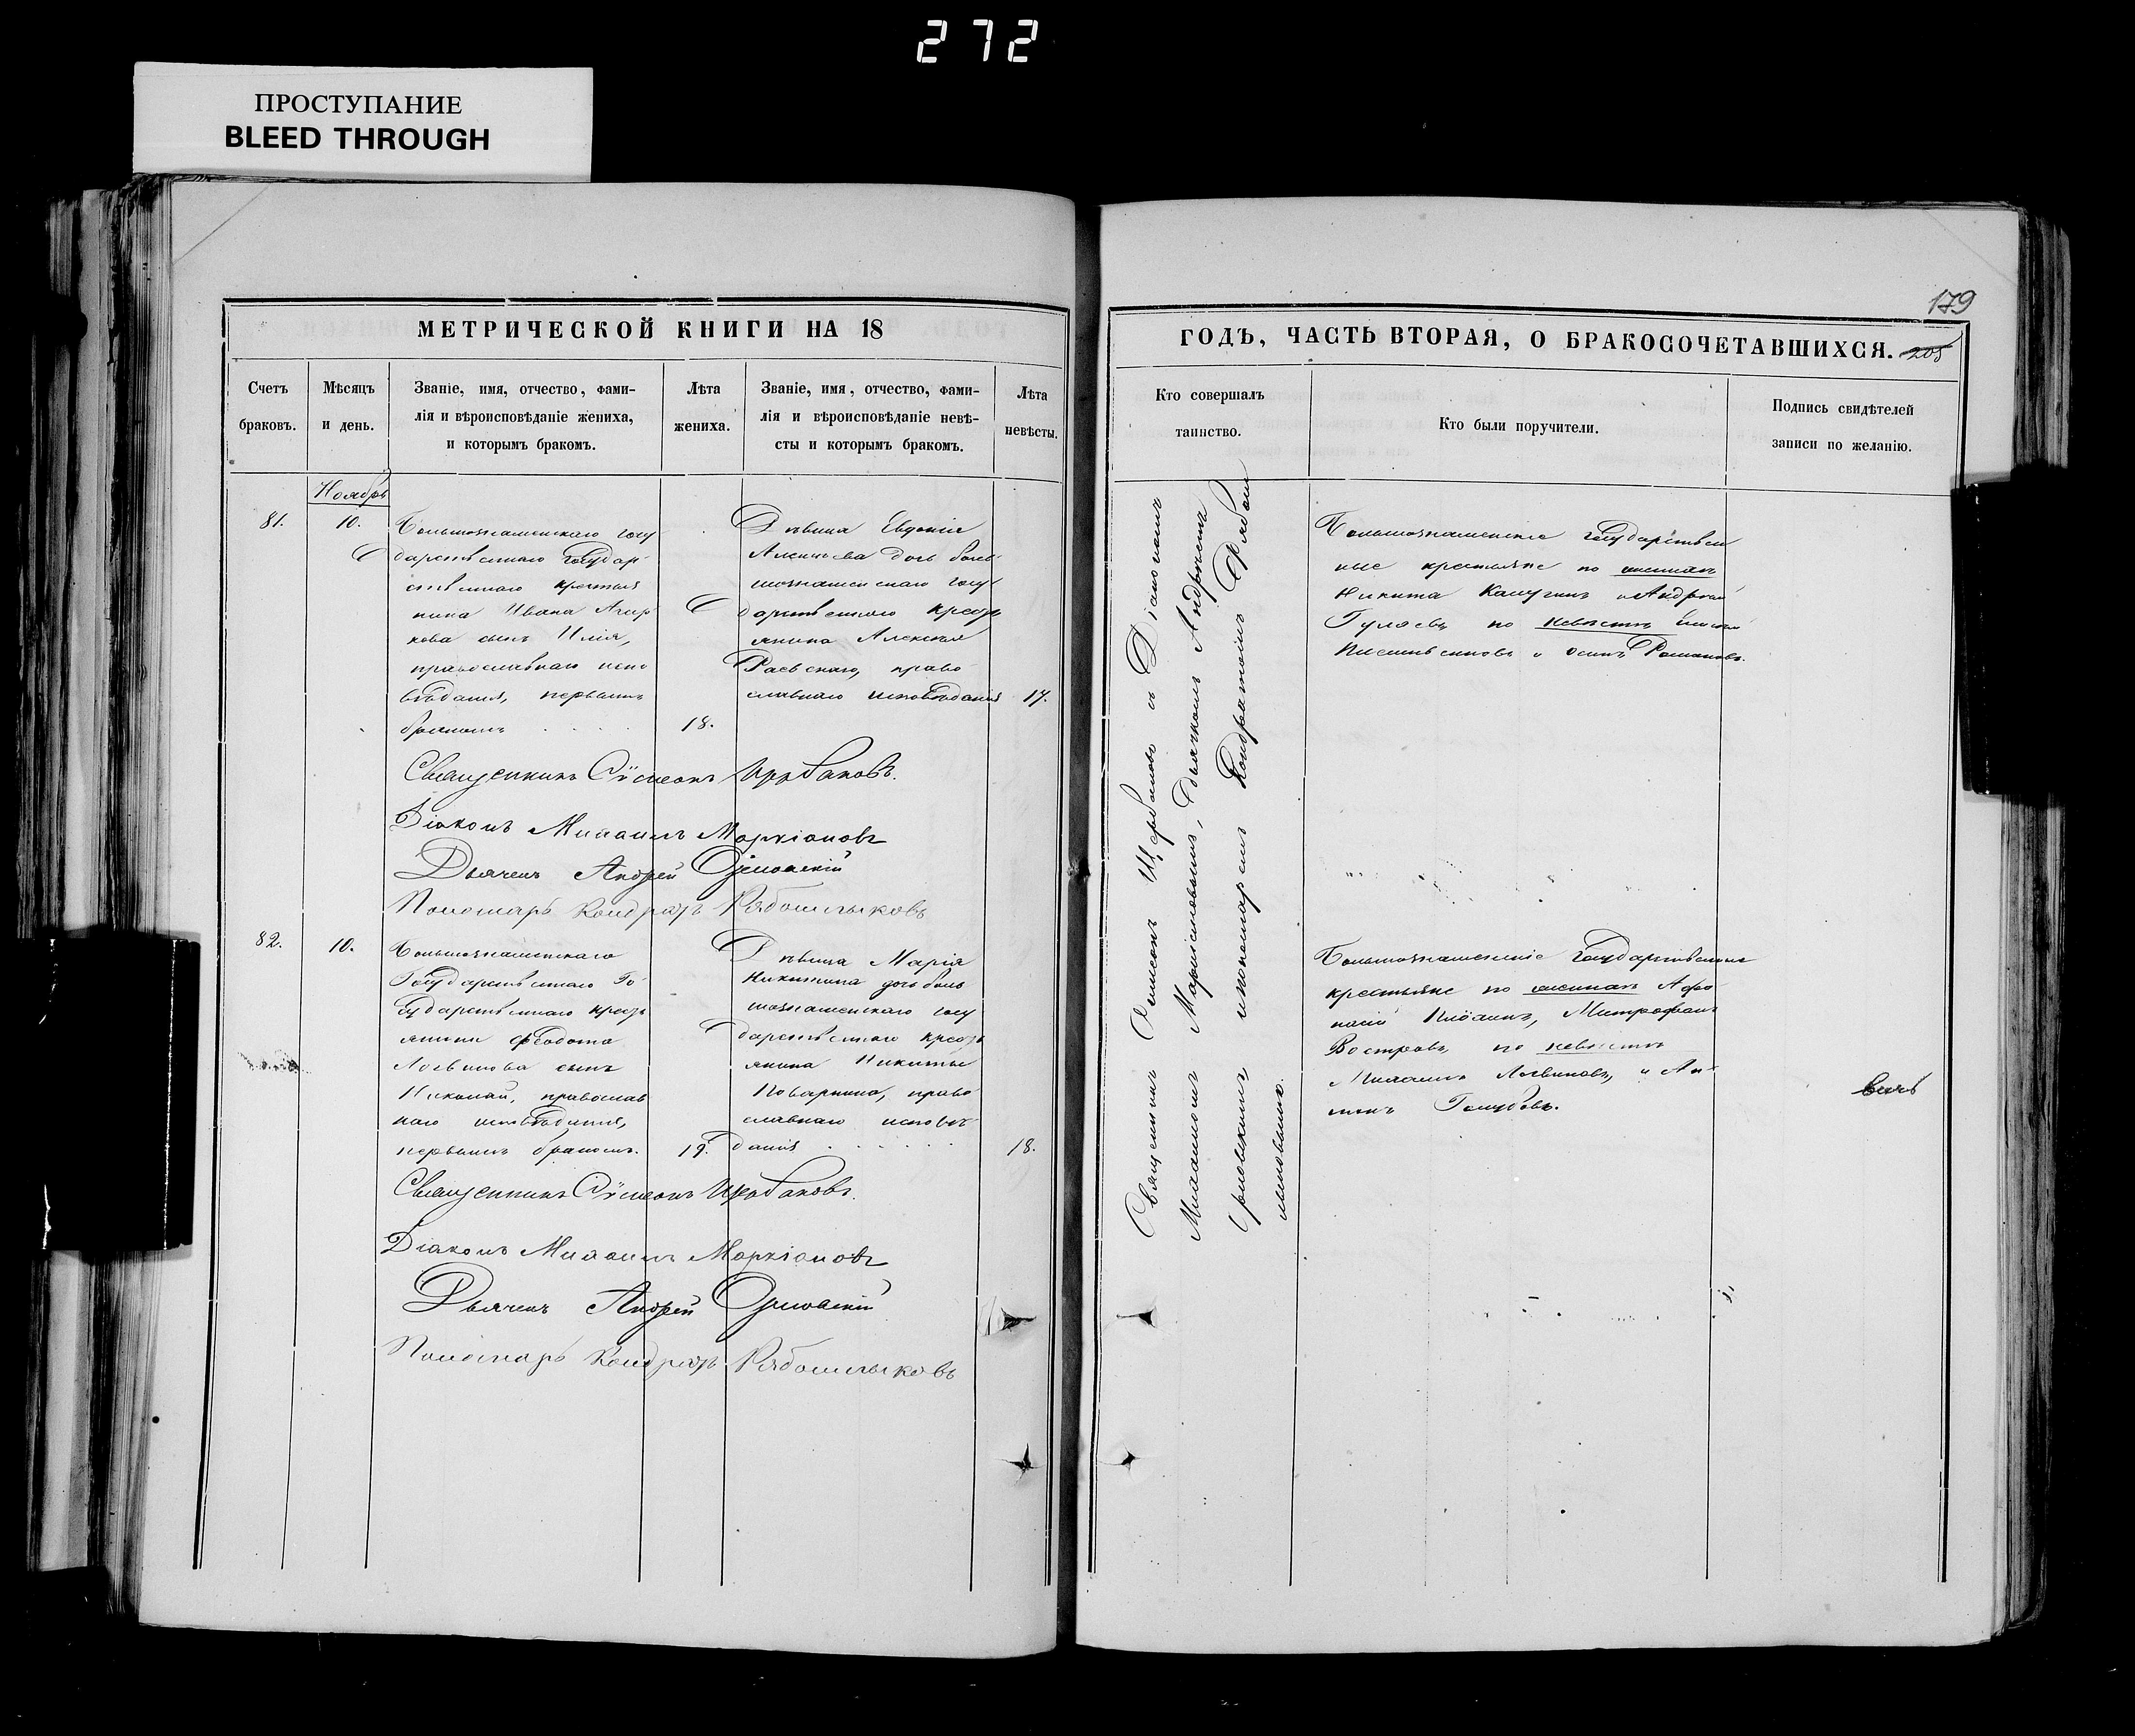 272
ПРОСТУПАНИЕ
BLEED THROUGH
МЕТРИЧЕСКОЙ КНИГИ НА 18
Счетъ браковъ.
Мѣсяцъ и день.
Званіе, имя, отчество, фами-
лія и вѣроисповѣданіе жениха,
и которымъ бракомъ.
Лѣта жениха.
Званіе, имя, отчество, фами-
лія и вѣроисповѣданіе невѣ-
сты и которымъ бракомъ.
Лѣта невѣсты.
Ноябрь
81.
10.
Большознаменскаго госу
дарственнаго Государ-
ственнаго крестья
нина Ивана
сынъ Илія,
православнаго испо
вѣданія, первымъ
бракомъ
18.
Дѣвица Евдокія
Алексѣева дочь боль
шознаменскаго госу
дарственнаго крест
янина Алексѣя
Раевскаго, право
славнаго исповѣданія
17.
Священникъ Сѵмеонъ Щербаковъ.
Діаконъ Михаилъ Маркіановъ
Дьячекъ Андрей
Пономарь Кондратъ
82.
10.
Большознаменскаго
Государственнаго Го
сударственнаго крест
янина Феодота
Логвинова сынъ
Николай, православ
наго исповѣданія,
первымъ бракомъ.
19.
Дѣвица Марія
Никитина дочь боль
шознаменскаго госу
дарственнаго крест
янина Никиты
Поварнина, право
славнаго исповѣ
данія
18.
Священникъ Сѵмеонъ Щербаковъ.
Діаконъ Михаилъ Маркіановъ
Дьячекъ Андрей
Пономарь Кондратъ
179
ГОДЪ, ЧАСТЬ ВТОРАЯ, О БРАКОСОЧЕТАВШИХСЯ.
205
Кто совершалъ
таинство.
Кто были поручители.
Подпись свидѣтелей
записи по желанію.
Священникъ Симеонъ Щербаковъ съ Діакономъ
Михаиломъ Маркіановымъ, Дьячкомъ Андреемъ
и пономаремъ Кондратіемъ
Большознаменскіе государствен
ные крестьяне по женихѣ
Никита Калугинъ и Андрей
Гуляевъ, по невѣстѣ
и Осипъ Романовъ.
Большознаменскіе Государственные
крестьяне по женихѣ Афа
насій Митрофанъ
Востровъ, по невѣстѣ
Михаилъ Логвиновъ, и Ан
типъ Голубовъ.